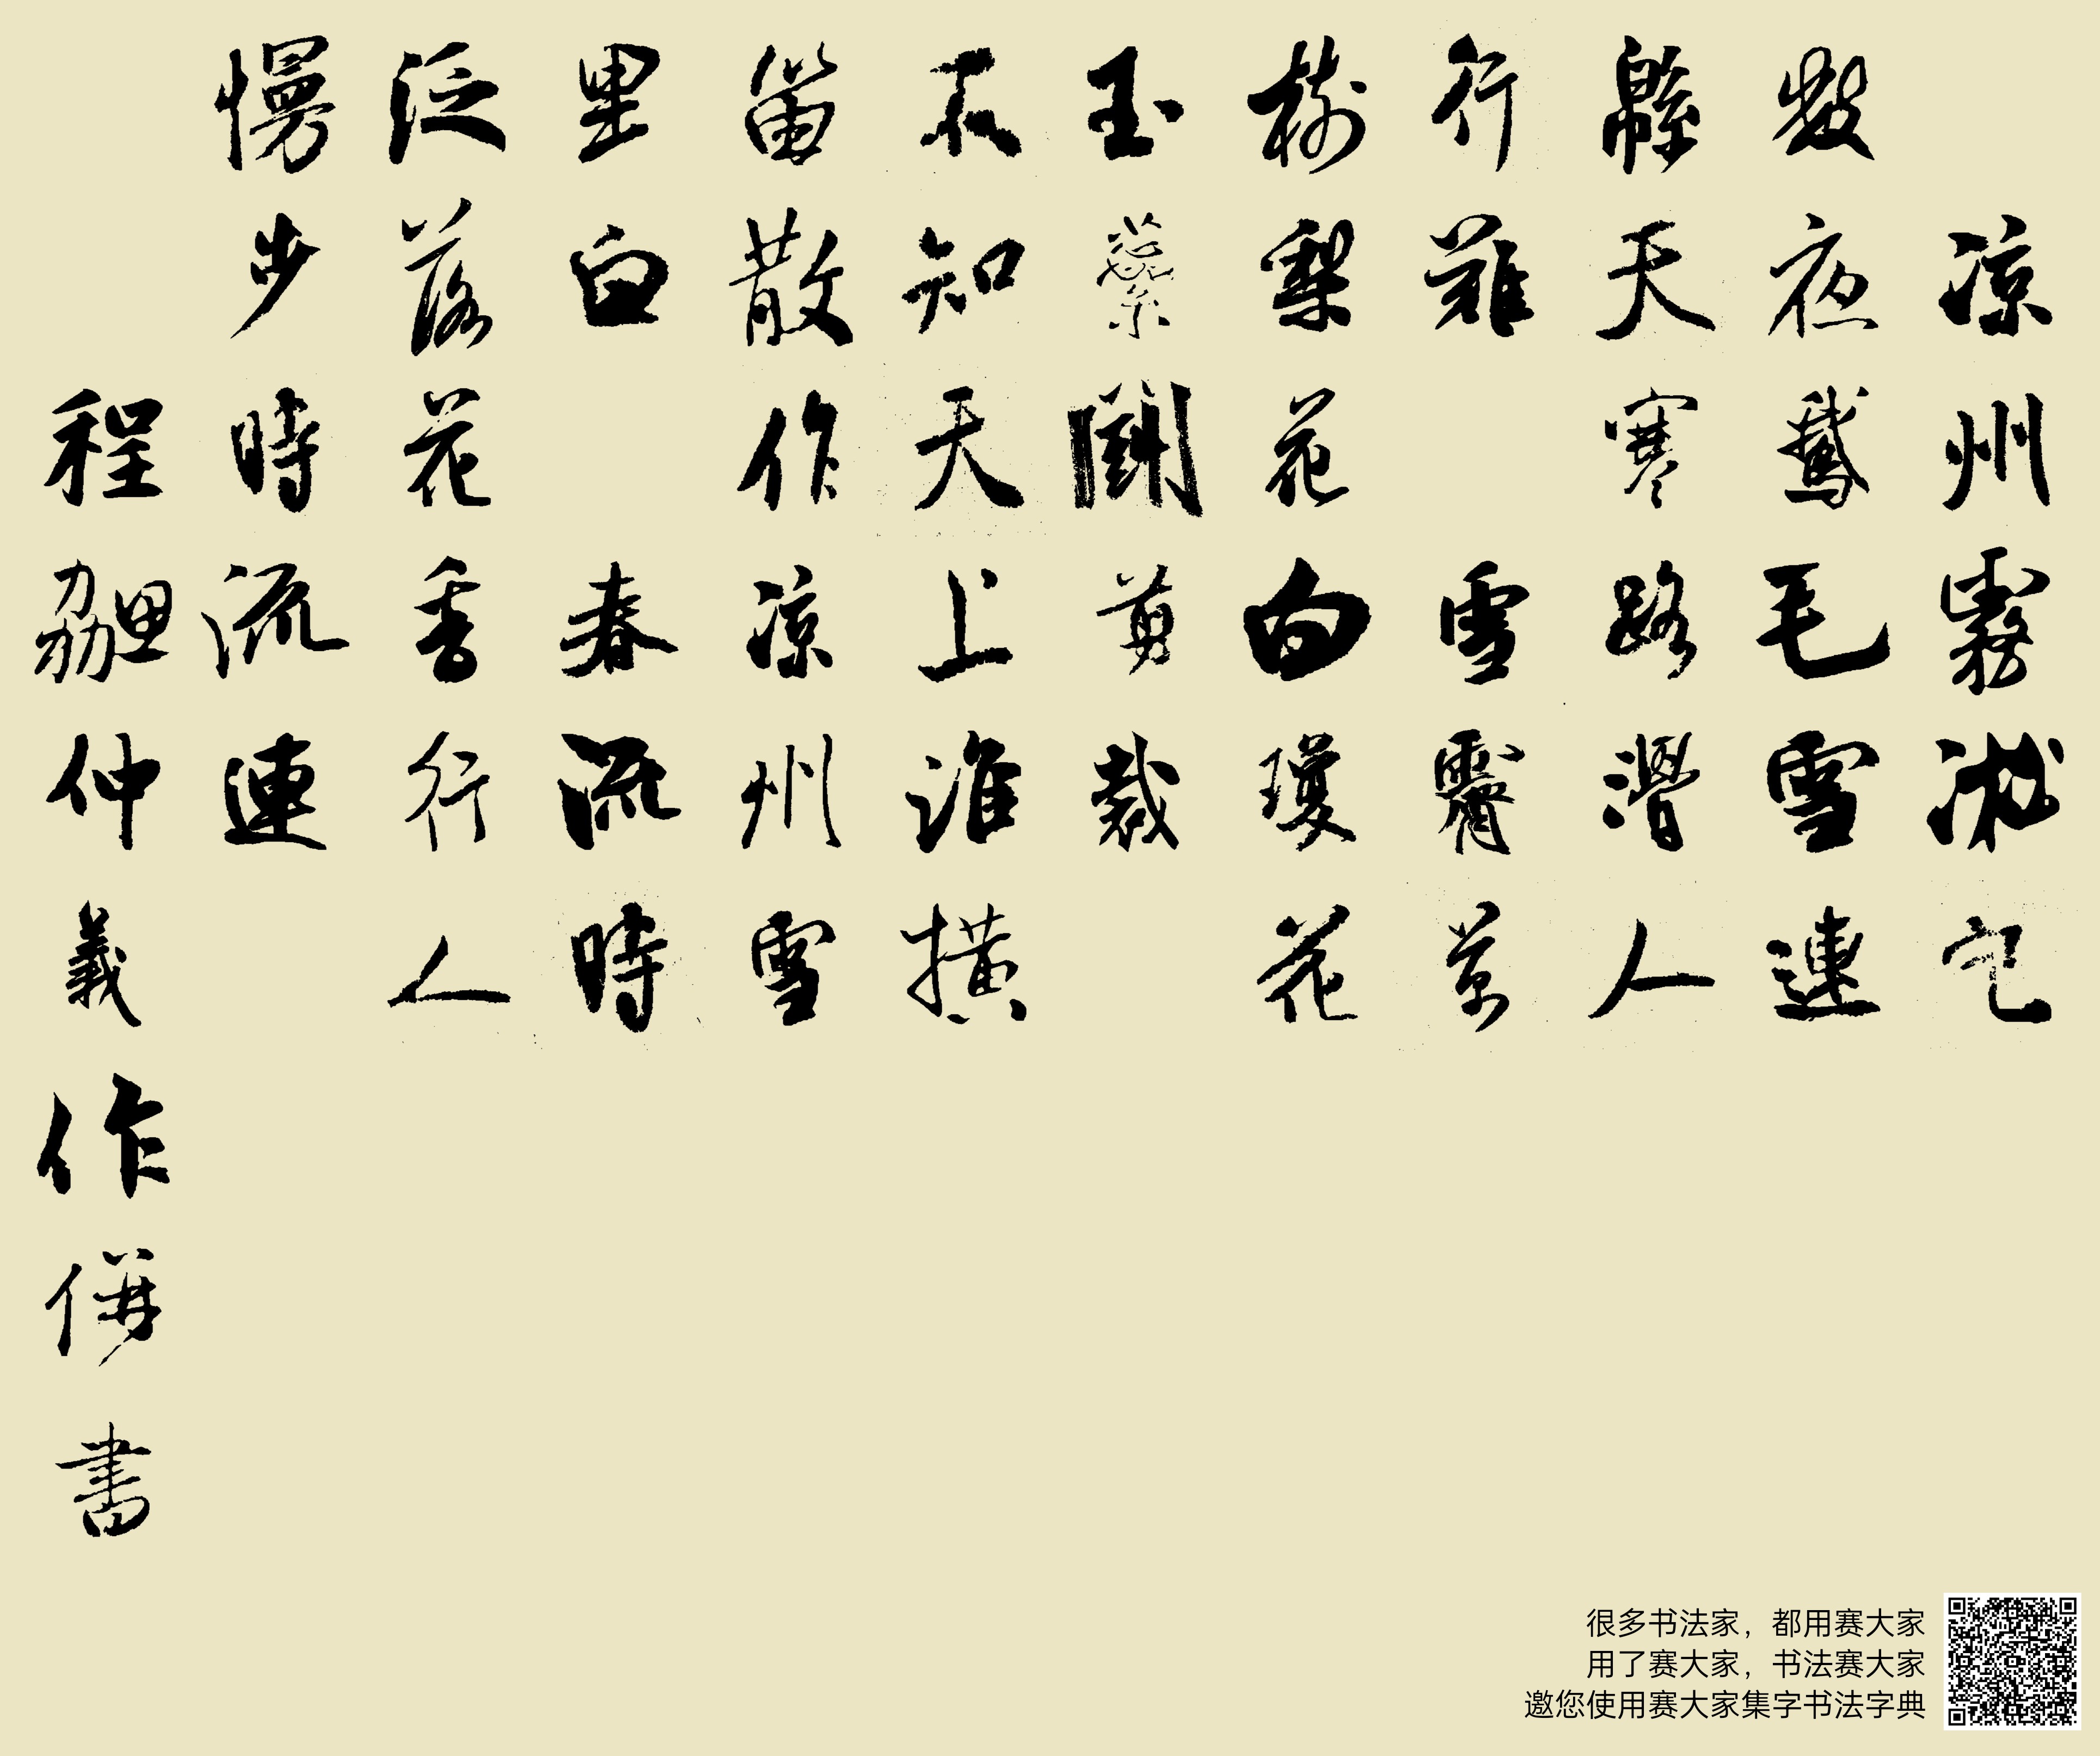 凉州霧淞它
數夜鵝毛雪連
緜天寒路滑人
行難 雪霽景
樹梨花 白瓊花
玉蘂鬭剪裁
不知天上誰橫
笛散作凉州雪
里白 春流時
泛落花香行人
慢步時流連
程勰仲義作併書
很多书法家，都用赛大家
用了赛大家，书法赛大家
邀您使用赛大家集字书法字典